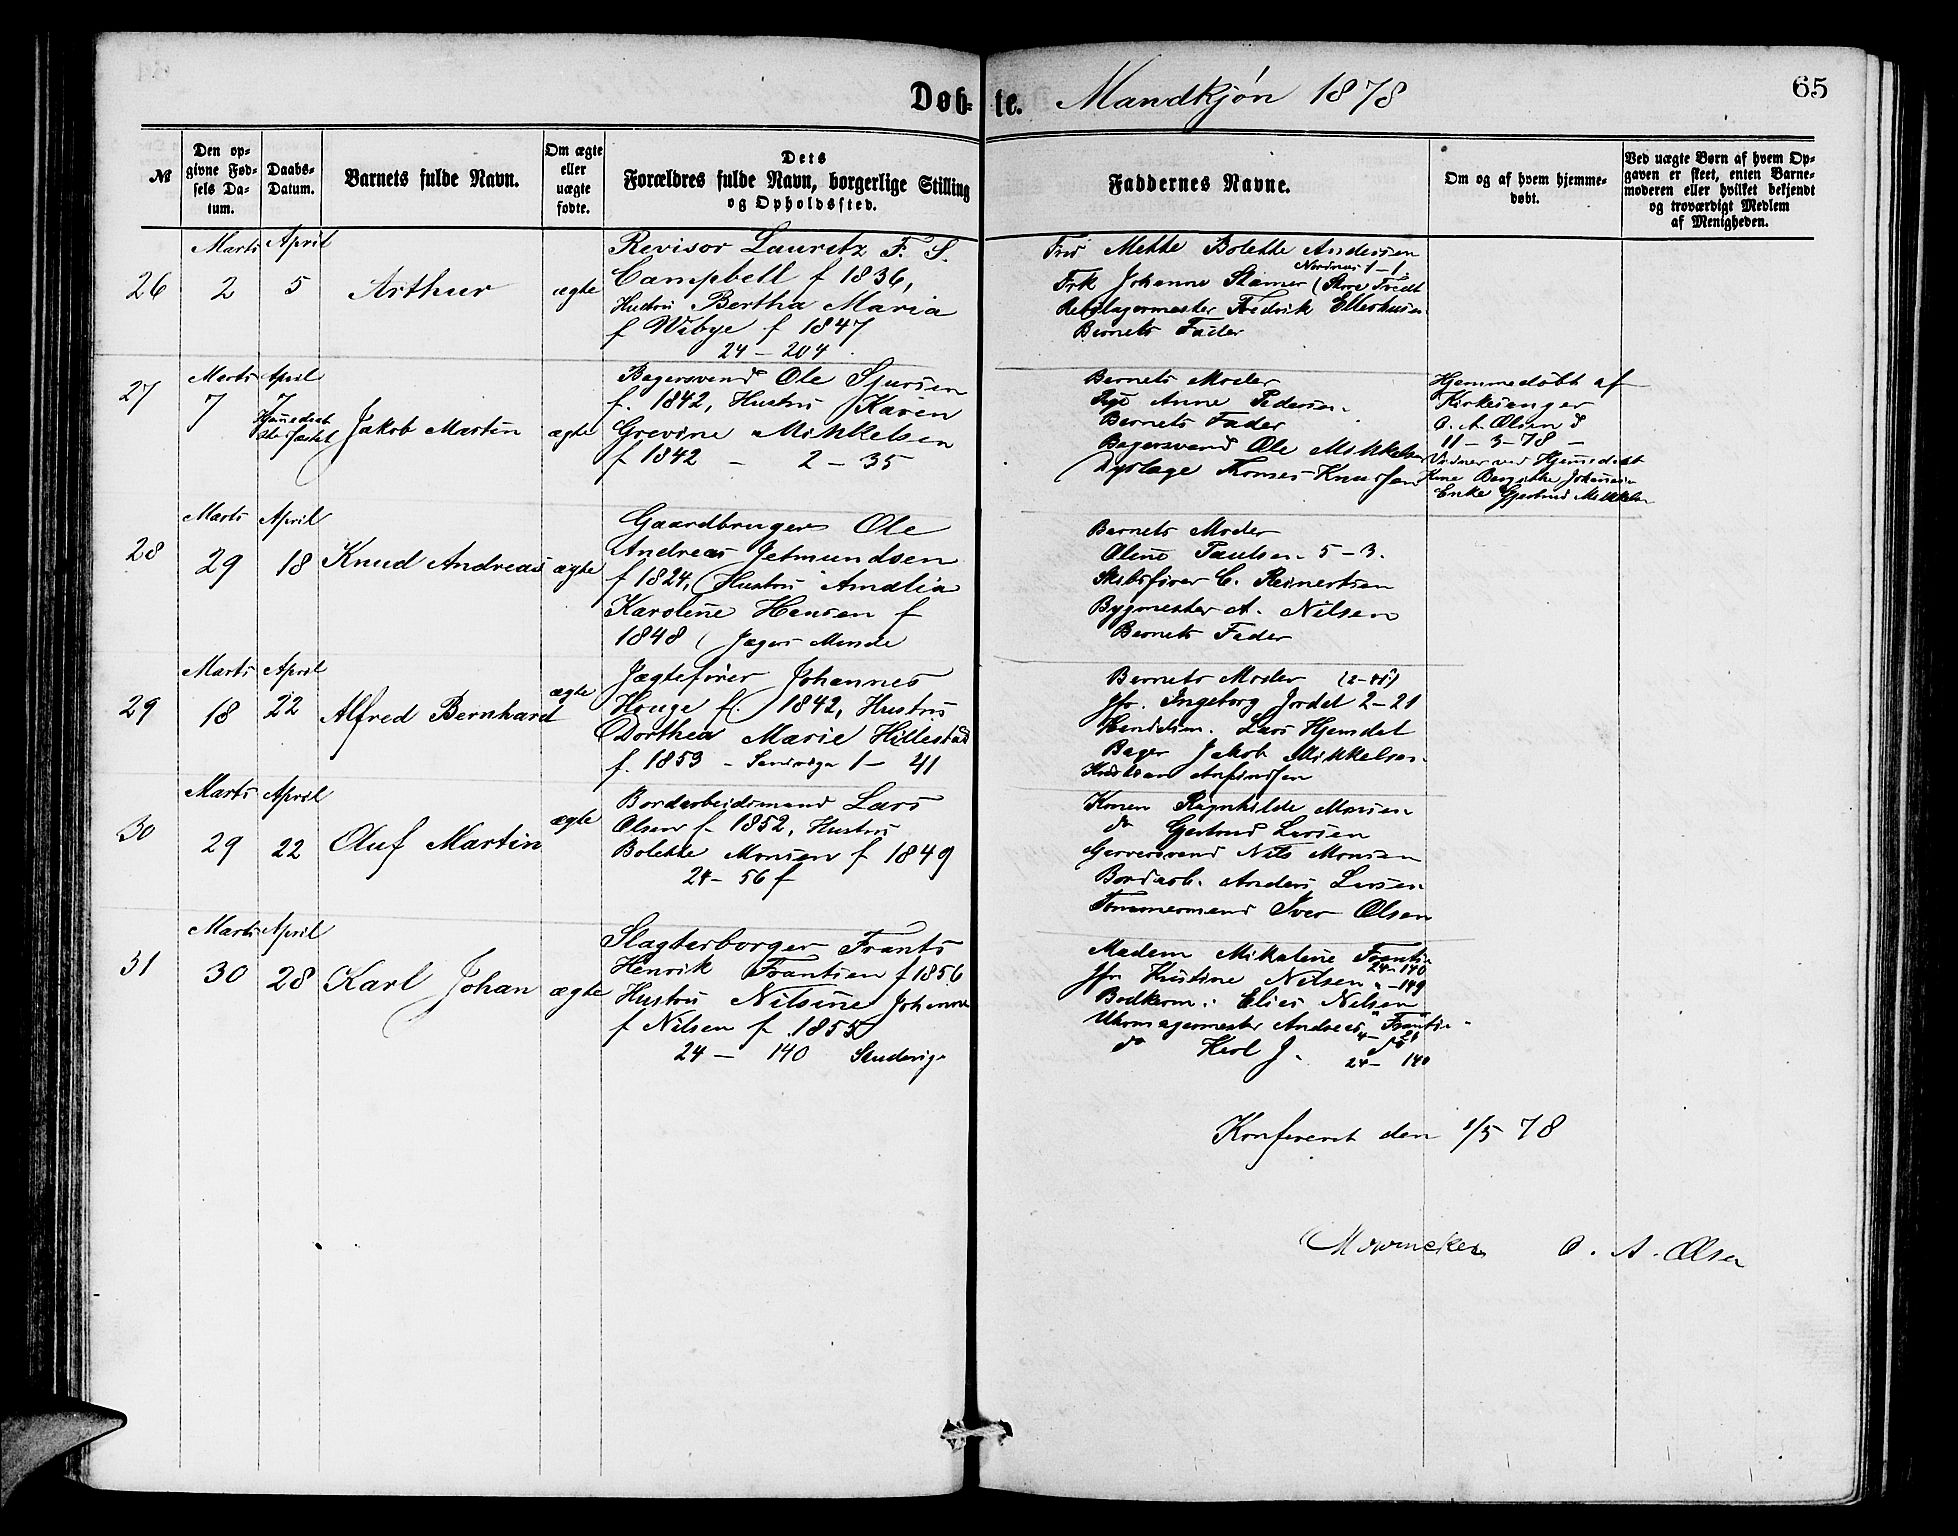 Døb-te. Mandkjøn 1878
65
№
Den opgivne Fødsels Datum.
Daabs-Datum.
Barnets fulde Navn.
Om ægte eller uægte fødte.
Dets Forældres fulde Navn, borgerlige Stilling og Opholdssted.
Faddernes Navne.
Om og af hvem hjemmedøbt.
Ved uægte Børn af hvem Opgaven er skeet, enten Barnemoderen eller hvilket bekjendt og troværdigt Medlem af Menigheden.
26
Marts 2
April 5
Arthur
ægte
Revisor Lauretz F. S.
Campbell f 1836,
Hustru Bertha Maria
f Wibye f 1847
24 - 204
Fru Mette Bolette Andersen
Nordnes 1 - 1
Frk Johanne Stamer (Store
Rebslagermester Fredrik Ellerhusen
Barnets Fader
27
Marts 7
April 7
Jakob Martin
ægte
Bagersvend Ole Sjursen
f. 1842, Hustru Karen
Grevine Mikkelsen
f 1842 - 2 - 35
Barnets Moder
Pige Anne Pedersen
Barnets Fader
Bagersvend Ole Mikkelsen
Thomas Knudsen
Hjemmedøbt af
Kirkesanger
O. A. Olsen d
11 - 3 - 78 -
Vidner ved Hjemmedaab
Kone Johannesen
Enke Gjertrud Mikkelsen
28
Marts 29
April 18
Knud Andreas
ægte
Gaardbruger Ole
Andreas Jetmundsen
f 1824, Hustru Amalia
Karoline Hansen f
1848 (Jægers Minde
Barnets Moder
Oline Paulsen 5 - 3.
Skibsfører C. Reinertsen
Bygmester A. Nilsen
Barnets Fader
29
Marts 18
April 22
Alfred Bernhard
ægte
Jægtefører Johannes
Houge f. 1842, Hustru
Dorthea Marie Hillestad
f. 1853 - Sandvigen 1 - 41
Barnets Moder
Jfr. Ingeborg Jordal 2 - 21
Handelsm. Lars Hjemdal
Bager Jakob Mikkelsen
Kristian Anfindsen
30
Marts 29
April 22
Oluf Martin
ægte
Bordarbeidsmand Lars
Olsen f. 1852, Hustru
Bolette Monsen f 1849
24 - 56 f
Konen Ragnhilde Monsen
do Gjertrud Larsen
Garversvend Nils Monsen
Bordarb. Anders Larsen
Tømmermand Iver Olsen
31
Marts 30
April 28
Karl Johan
ægte
Slagterborger Frants
Henrik Frantsen f 1856
Hustru Nilsine Johanne
f Nilsen f. 1855
24 - 140 Sandvig
Madam Mikaline Frantsen
24 - 140
Jfr Kristine Nilsen " - 149
Bødkerm. Elias Nelsen
Uhrmagermester Andreas Frantsen
do Karl J. do
24 - 140
Konfereret den 1/5 78
O. A. Olsen